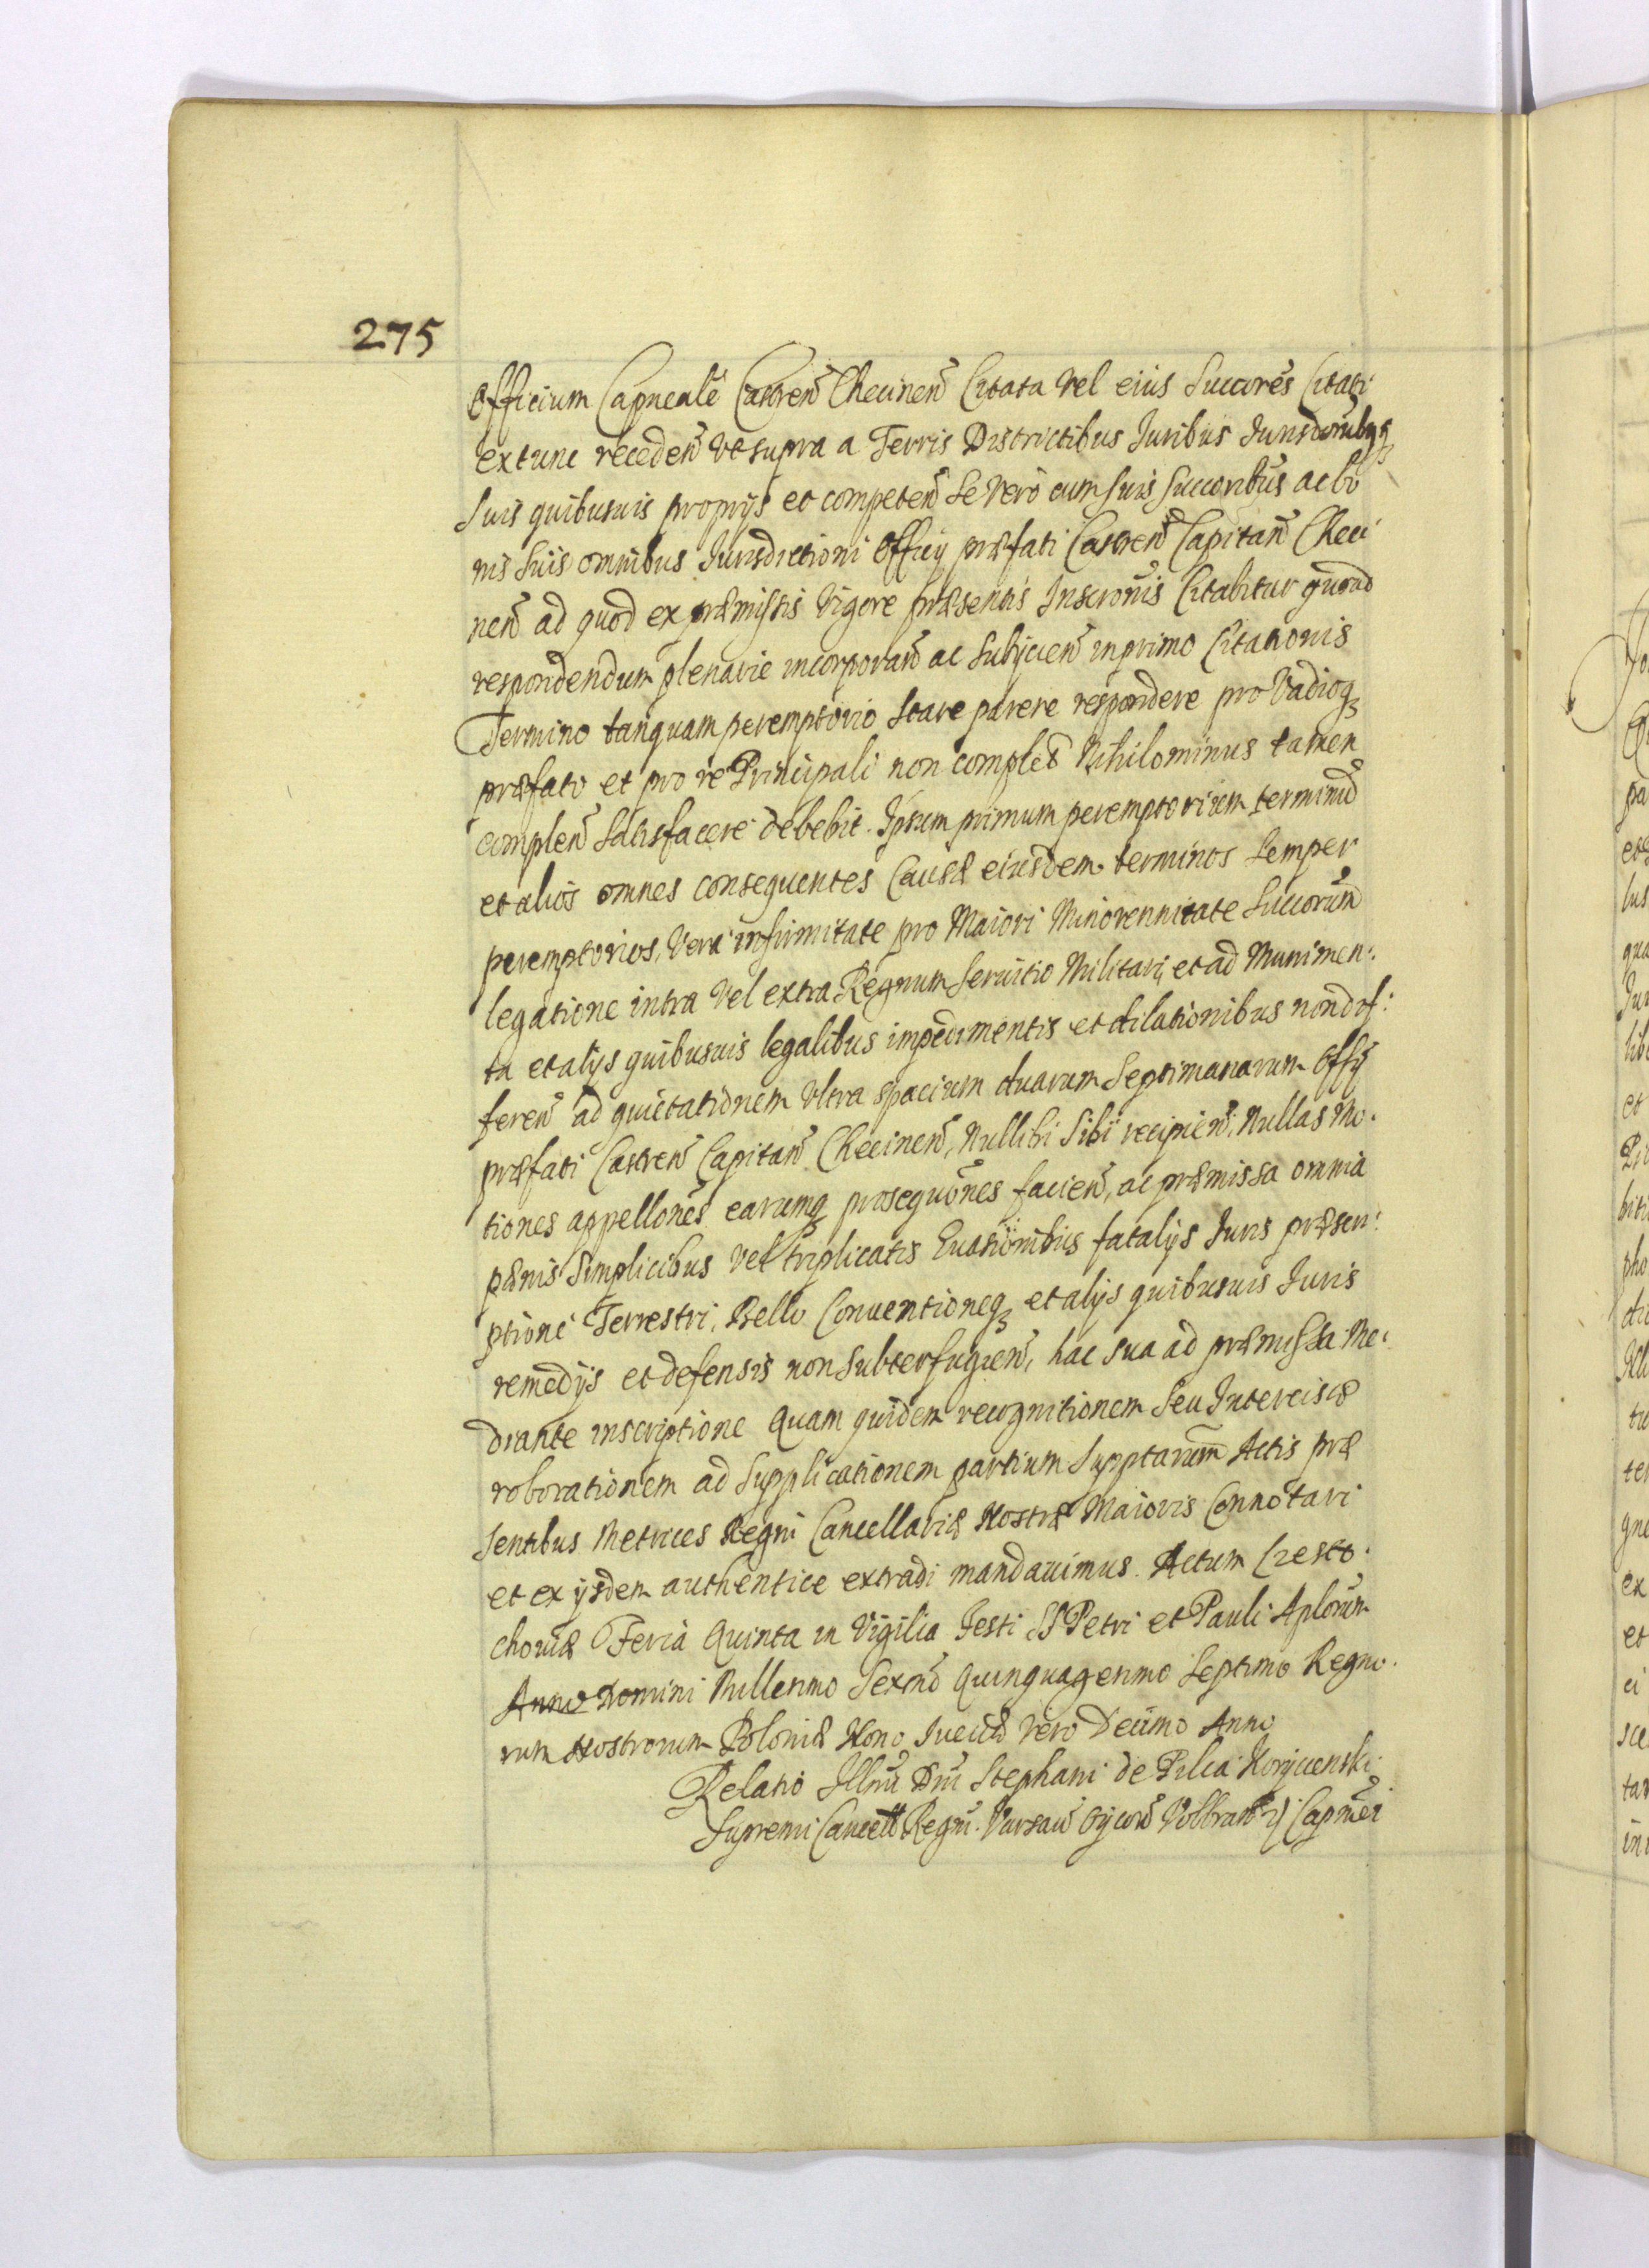 275
Officium Capneale Castren̄ Checinen̄ Citata vel eius Succores Citati
extunc receden̄ vt supra a Terris Districtibus Juribus Jurisdōnibusq3
suis quibusuis proprijs et competen̄ Se vero cum suis Succoribus ac bo
nis suis omnibus Jurisdictioni Officij præfati Castren̄ Capitan̄ Checi
nen̄ ad quod ex præmissis vigore præsentis Inscrōnis Citabitur quoad
respondendum plenarie incorporan̄ ac subijcien̄ in primo Citationis
Termino tanquam peremptorio stare parere respondere pro Vadioq3
præfato et pro re Principali non complet̄ Nihilominus tamen
complen̄ satisfacere debebit. Ipsum primum peremptorium terminū
et alios omnes consequentes Causæ eiusdem terminos semper
peremptorios, vera infirmitate pro Maiori Minorennitate Succorum̄
legatione intra vel extra Regnum Seruitio Militari et ad Munimen:
ta et alijs quibusuis legalibus impedimentis et dilationibus non dif:
feren̄ ad quietationem vltra spacium duarum Septimanarum Offij
præfati Castren̄ Capitan̄ Checinen̄, Nullibi sibi recipien̄, Nullas Mo:
tiones appellōnes earumq3 prosequōnes facien̄, ac præmissa omnia
pænis simplicibus vel triplicatis Euasionibus fatalijs Juris præscri:
ptione Terrestri, Bello Conuentioneq3 et alijs quibusuis Juris
remedijs et defensis non subterfugien̄, hac sua ad præmissa Me:
diante inscriptione Quam quidem recognitionem seu Intercisæ
roborationem ad Supplicationem partium supptarum̄ Actis præ
sentibus Metrices Regni Cancellariæ Nostræ Maioris Connotari
et ex ijsdem authentice extradi mandauimus. Actum Czesto:
chouiæ Feria Quinta in Vigilia Festi SS Petri et Pauli Aplorum̄
Anno Domini Millesimo Sexmo Quinquagesimo Septimo Regno
rum Nostrorum Poloniæ Nono Sueciæ vero Decimo Anno
Relatio Illmi Dni Stephani de Pilca Korycienski
Supremi Cancell Regni. Varsau Oycou Volbram 2j Capnei